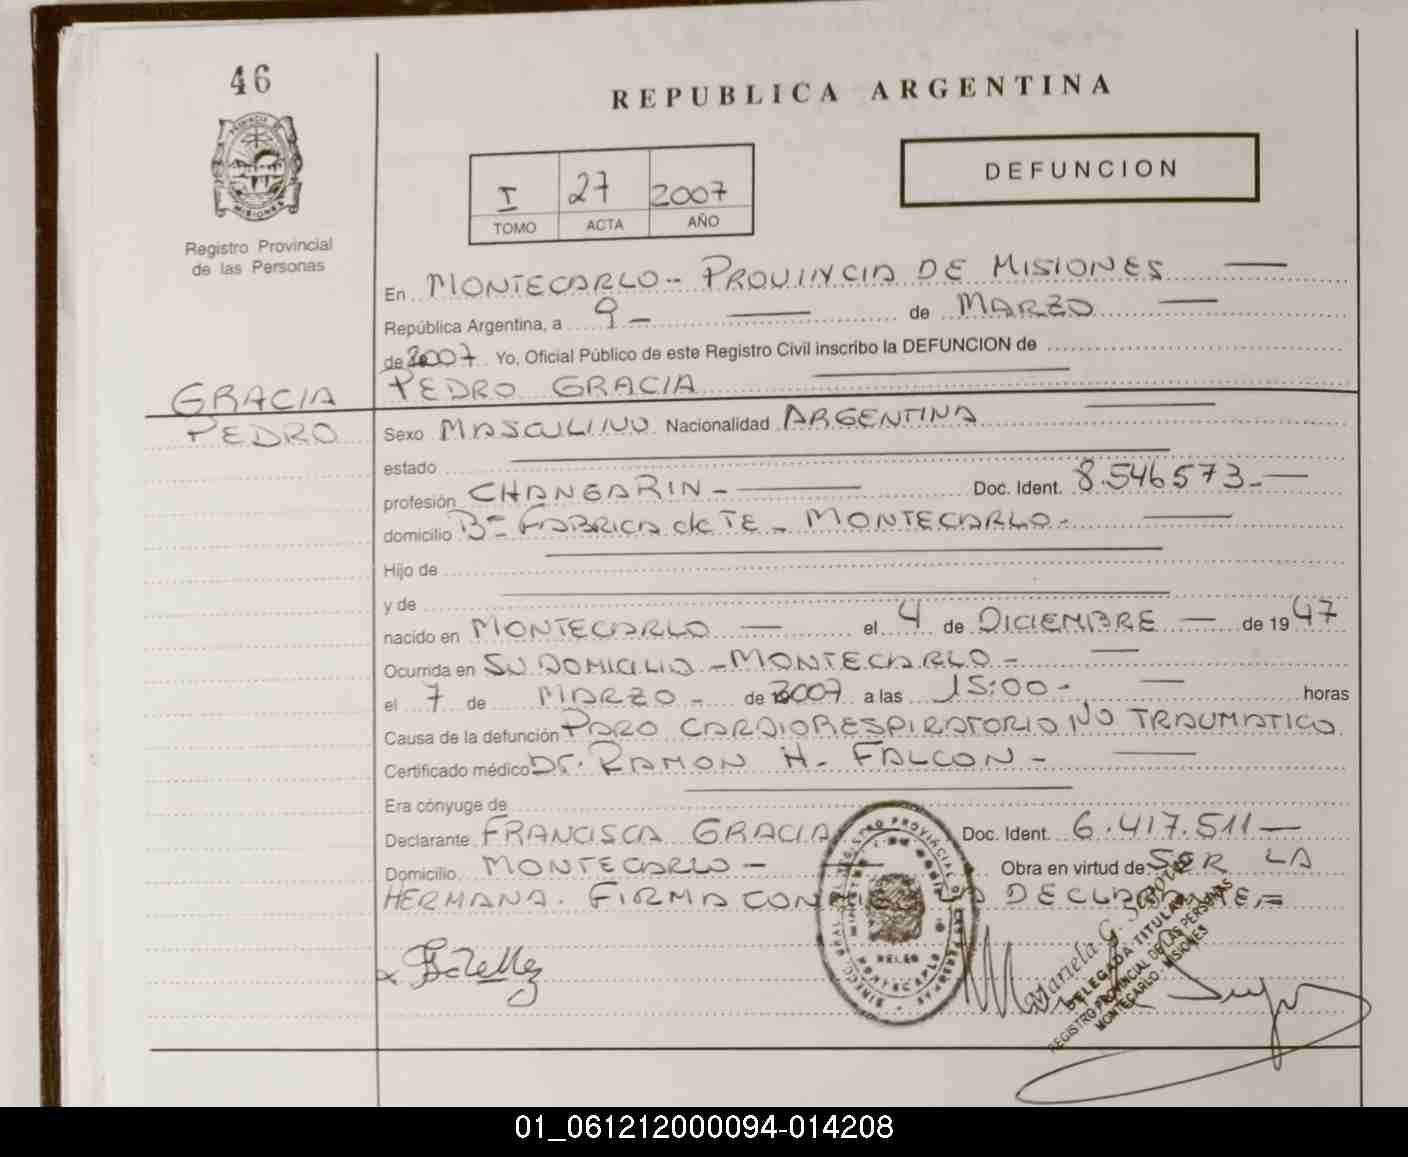 46
REPUBLICA ARGENTINA
PROVINCIA
MISIONES
Registro Provincial
de las Personas
I 27 2007
TOMO ACTA AÑO
DEFUNCION
En MONTECARLO - PROVINCIA DE MISIONES —
República Argentina, a 9 - — de MARZO —
de 2007 Yo, Oficial Público de este Registro Civil inscribo la DEFUNCION de
PEDRO GRACIA —
GRACIA
PEDRO
Sexo MASCULINO Nacionalidad ARGENTINA —
estado —
profesión CHANGARIN - — Doc. Ident. 8.546.573.-—
domicilio Bº FABRICA de TE - MONTECARLO- —
Hijo de —
y de —
nacido en MONTECARLO — el 4 de DICIEMBRE — de 1947
Ocurrida en SU DOMICILIO - MONTECARLO - —
el 7 de MARZO - de 2007 a las 15:00 - — horas
Causa de la defunción PARO CARDIORESPIRATORIO NO TRAUMATICO
Certificado médico Dr. RAMON H. FALCON - —
Era cónyuge de —
Declarante FRANCISCA GRACIA Doc. Ident. 6.417.511 —
Domicilio MONTECARLO - — Obra en virtud de SER LA
HERMANA. FIRMA CON DECLARANTE
Mariela G.
DELEGADA TITULAR
REGISTRO PROVINCIAL DE LAS PERSONAS
MONTECARLO MISIONES
01_061212000094-014208